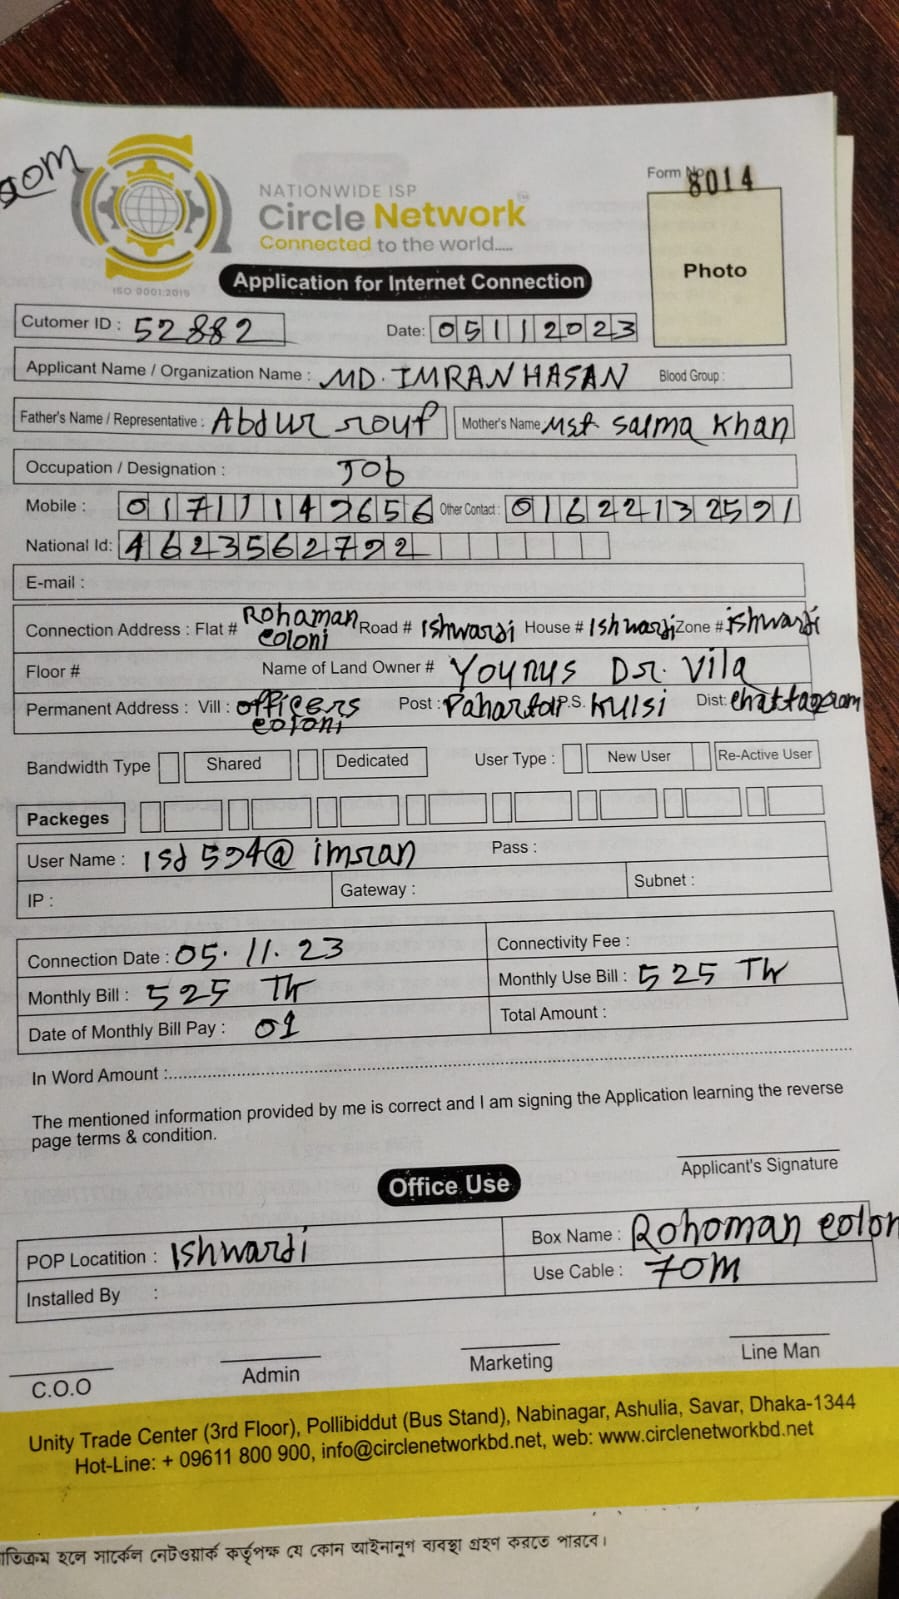 NATIONWIDE ISP
Circle Network
Connected to the world.....
ISO 9001:2015
Form No. 8014
Photo
Application for Internet Connection
Cutomer ID : 52882
Date: 05112023
Applicant Name / Organization Name : MD. IMRAN HASAN Blood Group :
Father's Name / Representative : Abdur rouf Mother's Name Mst Salma Khan
Occupation / Designation : Job
Mobile : Other Contact :
National Id:
E-mail :
Connection Address : Flat # Rohaman coloni Road # Ishwardi House # Ishwardi Zone # ishwardi
Floor # Name of Land Owner # Younus Dr. Vila
Permanent Address : Vill : officers coloni Post : Pahartoli P.S. Kulsi Dist: chattagram
Bandwidth Type Shared Dedicated User Type : New User Re-Active User
Packeges
User Name : Pass :
IP : Gateway : Subnet :
Connection Date : 05.11.23 Connectivity Fee :
Monthly Bill : 525 Tk Monthly Use Bill : 525 Tk
Date of Monthly Bill Pay : 01 Total Amount :
In Word Amount :
The mentioned information provided by me is correct and I am signing the Application learning the reverse
page terms & condition.
Applicant's Signature
Office Use
POP Locatition : Ishwardi Box Name : Rohoman colon
Installed By : Use Cable : 70M
C.O.O Admin Marketing Line Man
Unity Trade Center (3rd Floor), Pollibiddut (Bus Stand), Nabinagar, Ashulia, Savar, Dhaka-1344
Hot-Line: + 09611 800 900, info@circlenetworkbd.net, web: www.circlenetworkbd.net
হলে সার্কেল নেটওয়ার্ক কর্তৃপক্ষ যে কোন আইনানুগ ব্যবস্থা গ্রহণ করতে পারবে।